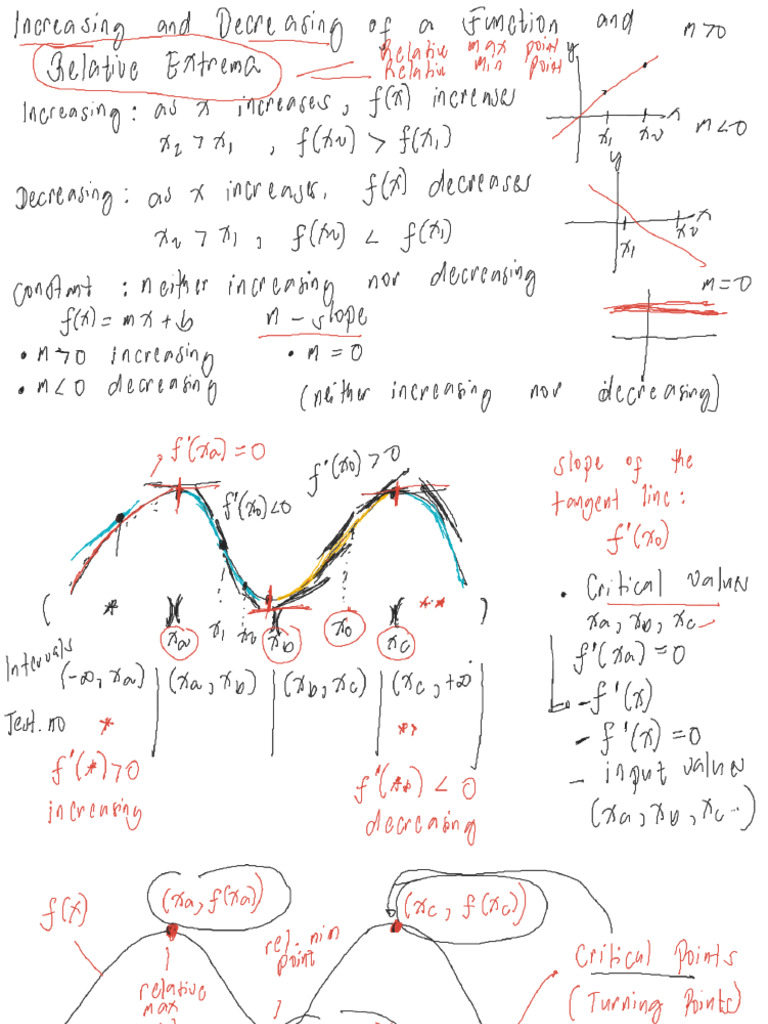 Increasing and Decreasing of a Function and
Relative Extrema
Relative max point
Relative min point
m>0
y
x₁ x₂ x
Increasing : as x increases, f(x) increases
x₂ > x₁ , f(x₂) > f(x₁)
m<0
y
x₁ x₂ x
Decreasing : as x increases, f(x) decreases
x₂ > x₁ , f(x₂) < f(x₁)
m=0
constant : neither increasing nor decreasing
f(x) = mx + b m – slope
• m>0 increasing • m = 0
• m<0 decreasing (neither increasing nor decreasing)
f'(xa) = 0
f'(x₀) < 0
f'(x₀) > 0
slope of the
tangent line:
f'(x₀)
( * ** )
xa x₁ x₂ xb x₀ xc
Intervals
(-∞, xa) (xa, xb) (xb, xc) (xc, +∞
Test. no * **
f'(*) > 0 f'(**) < 0
increasing decreasing
• Critical values
xa, xb, xc
f'(xa) = 0
- f'(x)
- f'(x) = 0
- input values
(xa, xb, xc...)
f(x)
(xa, f(xa))
(xc, f(xc))
relative
max
rel. min
point
Critical Points
(Turning Points)